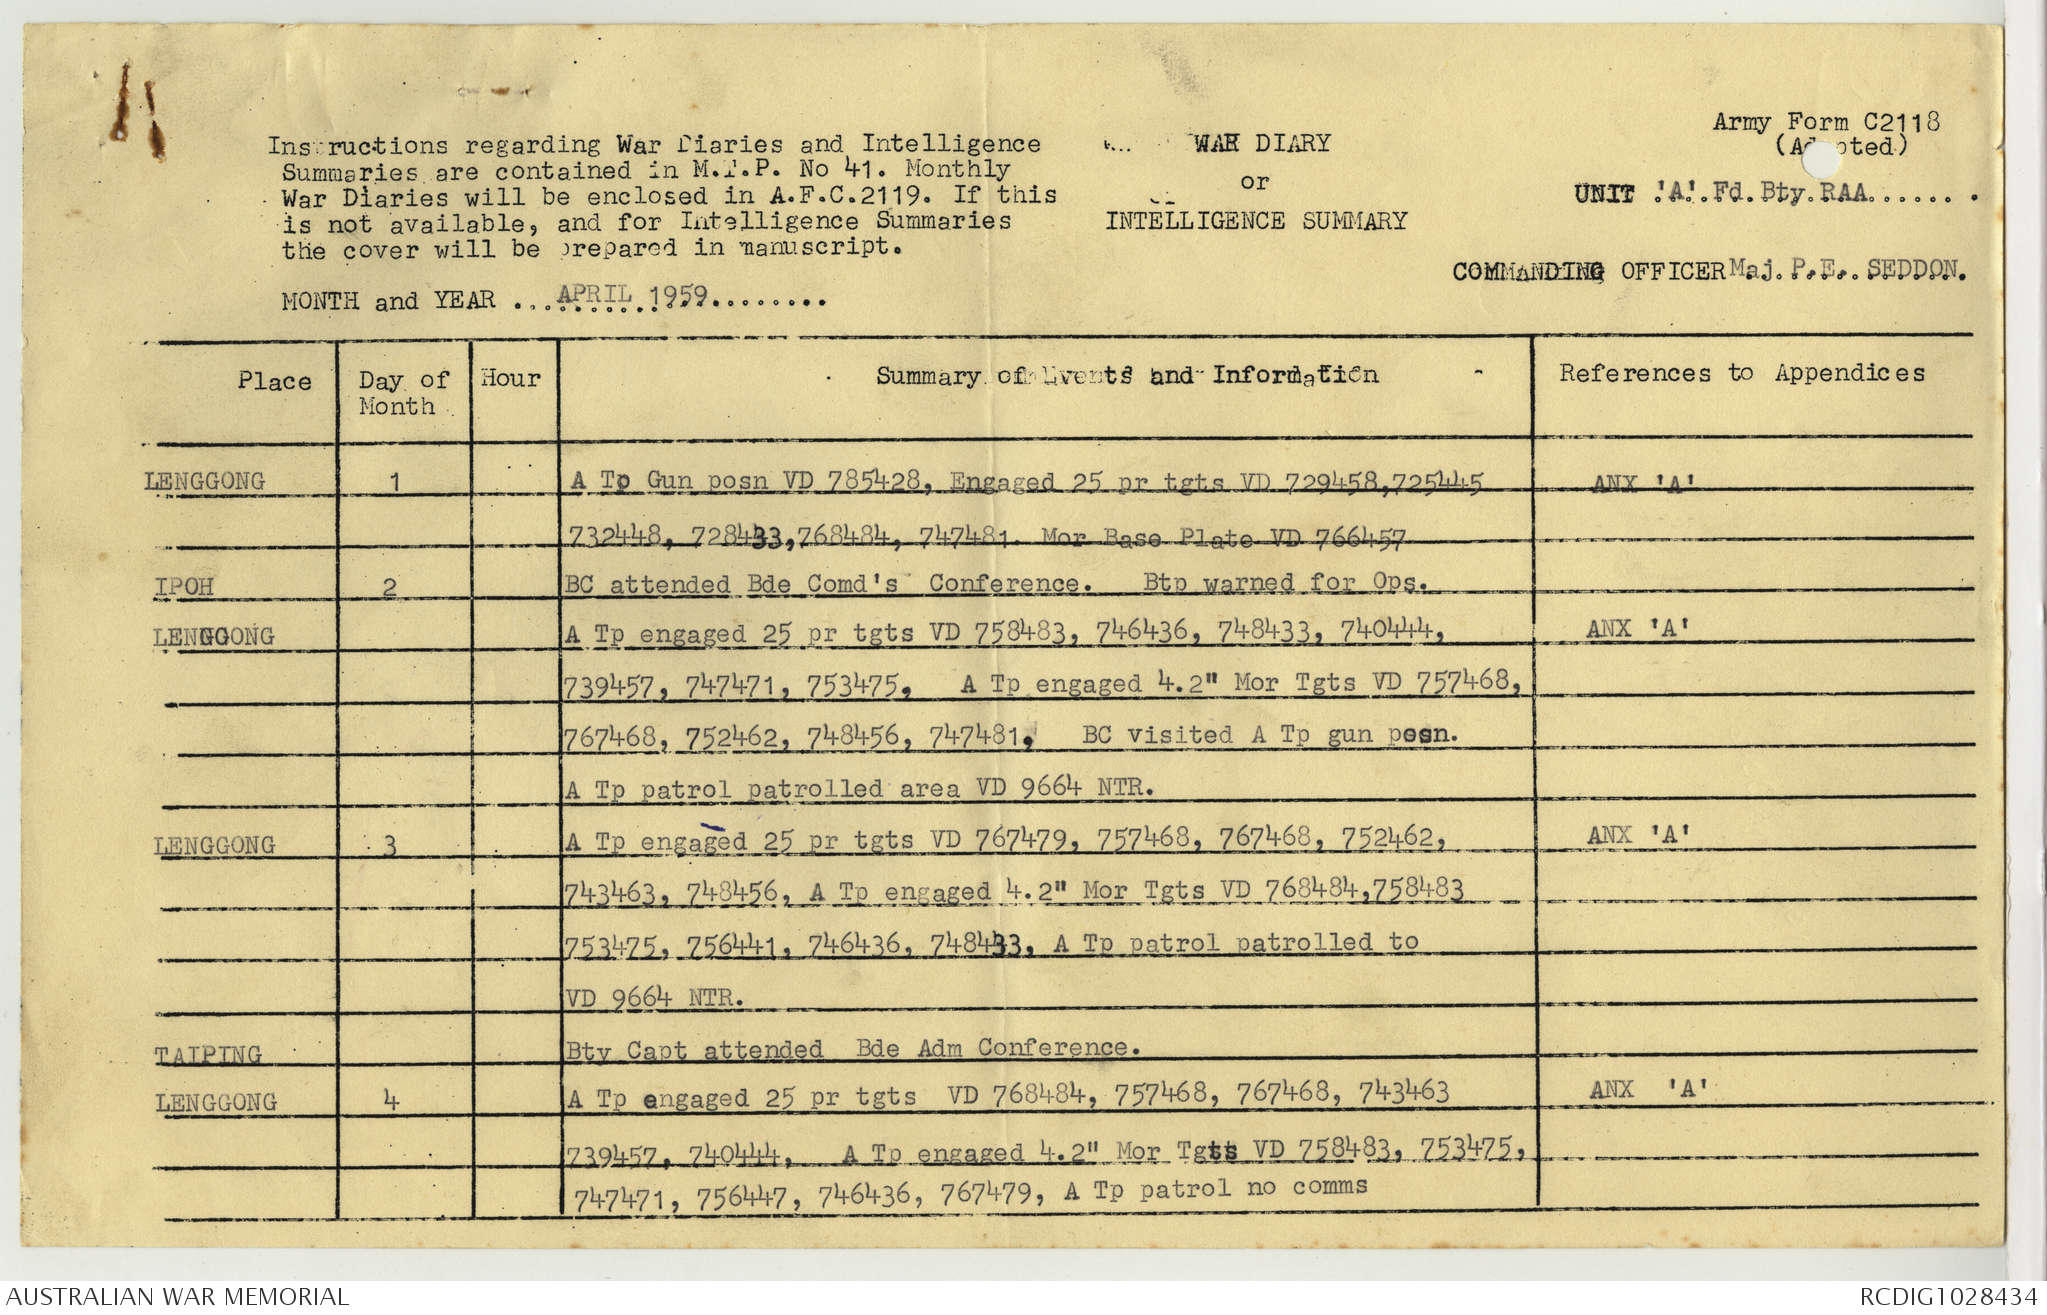 Army Form C2118
(Adopted)
Instructions regarding War Diaries and Intelligence
Summaries are contained in M.T.P. No 41. Monthly
War Diaries will be enclosed in A.F.C.2119. If this
is not available, and for Intelligence Summaries
the cover will be prepared in manuscript.
MONTH and YEAR ...APRIL 1959........
WAR DIARY
or
INTELLIGENCE SUMMARY
UNIT 'A' Fd Bty RAA.......
COMMANDING OFFICER Maj P.E. SEDDON.
Place Day of Month Hour Summary of Events and Information References to Appendices
LENGGONG 1 A Tp Gun posn VD 785428, Engaged 25 pr tgts VD 729458,725445 ANX 'A'
732448, 728433,768484, 747481. Mor Base Plate VD 766457
IPOH 2 BC attended Bde Comd's Conference. Btp warned for Ops.
LENGGONG A Tp engaged 25 pr tgts VD 758483, 746436, 748433, 740444, ANX 'A'
739457, 747471, 753475, A Tp engaged 4.2" Mor Tgts VD 757468,
767468, 752462, 748456, 747481, BC visited A Tp gun posn.
A Tp patrol patrolled area VD 9664 NTR.
LENGGONG 3 A Tp engaged 25 pr tgts VD 767479, 757468, 767468, 752462, ANX 'A'
743463, 748456, A Tp engaged 4.2" Mor Tgts VD 768484,758483
753475, 756441, 746436, 748433, A Tp patrol patrolled to
VD 9664 NTR.
TAIPING Bty Capt attended Bde Adm Conference.
LENGGONG 4 A Tp engaged 25 pr tgts VD 768484, 757468, 767468, 743463 ANX 'A'
739457, 740444, A Tp engaged 4.2" Mor Tgts VD 758483, 753475,
747471, 756447, 746436, 767479, A Tp patrol no comms
AUSTRALIAN WAR MEMORIAL
RCDIG1028434